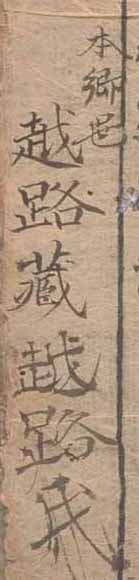 本郷邑
越路蔵越路氏